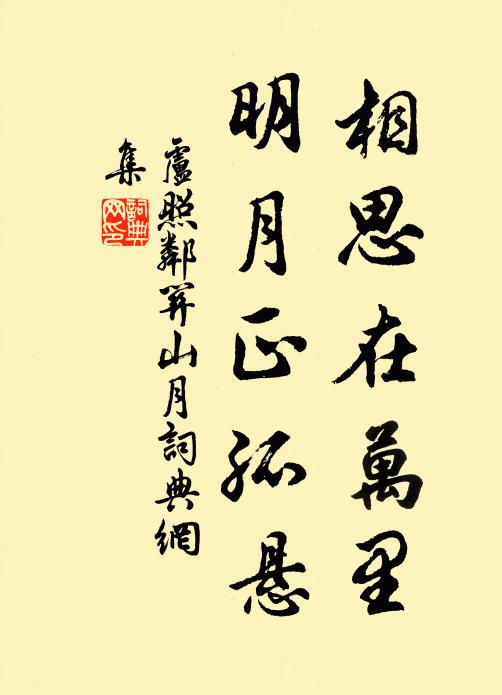 相思在萬里
明月正孤悬
盧照鄰関山月詞典網
集
詞典
网印